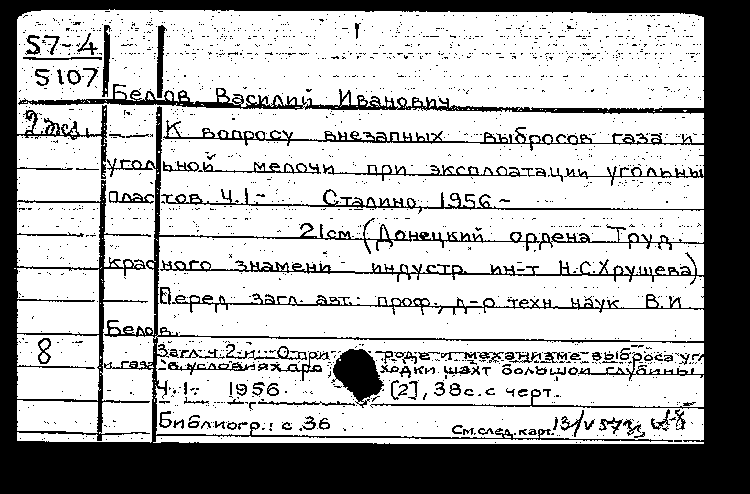 57-4
5107
Белов, Василий Иванович
2 экз.
К вопросу внезапных выбросов газа и
угольной мелочи при эксплоатации угольны
пластов Ч.1.- Сталино, 1956.-
21см (Донецкий ордена Труд.
красного знамени индустр. ин-т Н.С.Хрущева)
Перед загл. авт.: проф., д-р техн. наук В.И
Белов.
8
Загл. ч.2-й: О при роде и механизме выброса уг
и газа в условиях про ходки шахт большой глубины,
Ч.1.- 1956. [2], 38с. с черт.
Библиогр.: с.36.
См.след.карт. 13/V 57г.